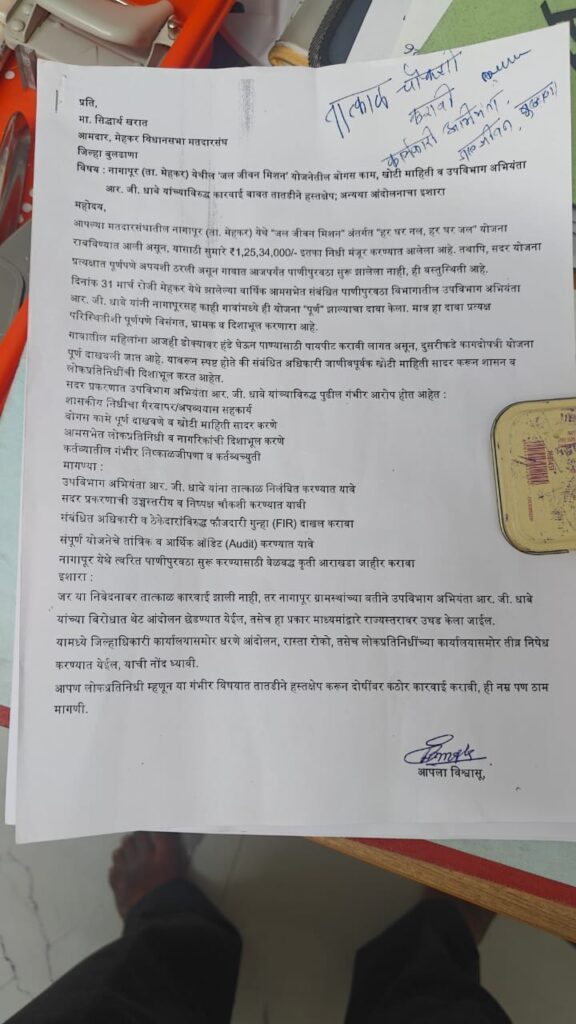 तात्काळ चौकशी
करावी
कार्यकारी अभियंता,
जलजीवन, बुलढाणा
प्रति,
मा. सिद्धार्थ खरात
आमदार, मेहकर विधानसभा मतदारसंघ
जिल्हा बुलढाणा
विषय : नागापूर (ता. मेहकर) येथील 'जल जीवन मिशन' योजनेतील बोगस काम, खोटी माहिती व उपविभाग अभियंता
आर. जी. धाबे यांच्याविरुद्ध कारवाई बाबत तातडीने हस्तक्षेप; अन्यथा आंदोलनाचा इशारा
महोदय,
आपल्या मतदारसंघातील नागापूर (ता. मेहकर) येथे "जल जीवन मिशन" अंतर्गत "हर घर नल, हर घर जल" योजना
राबविण्यात आली असून, यासाठी सुमारे ₹1,25,34,000/- इतका निधी मंजूर करण्यात आलेला आहे. तथापि, सदर योजना
प्रत्यक्षात पूर्णपणे अपयशी ठरली असून गावात आजपर्यंत पाणीपुरवठा सुरू झालेला नाही, ही वस्तुस्थिती आहे.
दिनांक 31 मार्च रोजी मेहकर येथे झालेल्या वार्षिक आमसभेत संबंधित पाणीपुरवठा विभागातील उपविभाग अभियंता
आर. जी. धाबे यांनी नागापूरसह काही गावांमध्ये ही योजना "पूर्ण" झाल्याचा दावा केला. मात्र हा दावा प्रत्यक्ष
परिस्थितीशी पूर्णपणे विसंगत, भ्रामक व दिशाभूल करणारा आहे.
गावातील महिलांना आजही डोक्यावर हंडे घेऊन पाण्यासाठी पायपीट करावी लागत असून, दुसरीकडे कागदोपत्री योजना
पूर्ण दाखवली जात आहे. यावरून स्पष्ट होते की संबंधित अधिकारी जाणीवपूर्वक खोटी माहिती सादर करून शासन व
लोकप्रतिनिधींची दिशाभूल करत आहेत.
सदर प्रकरणात उपविभाग अभियंता आर. जी. धाबे यांच्याविरुद्ध पुढील गंभीर आरोप होत आहेत :
शासकीय निधीचा गैरवापर/अपव्ययास सहकार्य
बोगस कामे पूर्ण दाखवणे व खोटी माहिती सादर करणे
आमसभेत लोकप्रतिनिधी व नागरिकांची दिशाभूल करणे
कर्तव्यातील गंभीर निष्काळजीपणा व कर्तव्यच्युती
मागण्या :
उपविभाग अभियंता आर. जी. धाबे यांना तात्काळ निलंबित करण्यात यावे
सदर प्रकरणाची उच्चस्तरीय व निष्पक्ष चौकशी करण्यात यावी
संबंधित अधिकारी व ठेकेदारांविरुद्ध फौजदारी गुन्हा (FIR) दाखल करावा
संपूर्ण योजनेचे तांत्रिक व आर्थिक ऑडिट (Audit) करण्यात यावे
नागापूर येथे त्वरित पाणीपुरवठा सुरू करण्यासाठी वेळबद्ध कृती आराखडा जाहीर करावा
इशारा :
जर या निवेदनावर तात्काळ कारवाई झाली नाही, तर नागापूर ग्रामस्थांच्या वतीने उपविभाग अभियंता आर. जी. धाबे
यांच्या विरोधात थेट आंदोलन छेडण्यात येईल, तसेच हा प्रकार माध्यमांद्वारे राज्यस्तरावर उघड केला जाईल.
यामध्ये जिल्हाधिकारी कार्यालयासमोर धरणे आंदोलन, रास्ता रोको, तसेच लोकप्रतिनिधींच्या कार्यालयासमोर तीव्र निषेध
करण्यात येईल, याची नोंद घ्यावी.
आपण लोकप्रतिनिधी म्हणून या गंभीर विषयात तातडीने हस्तक्षेप करून दोषींवर कठोर कारवाई करावी, ही नम्र पण ठाम
मागणी.
आपला विश्वासू,